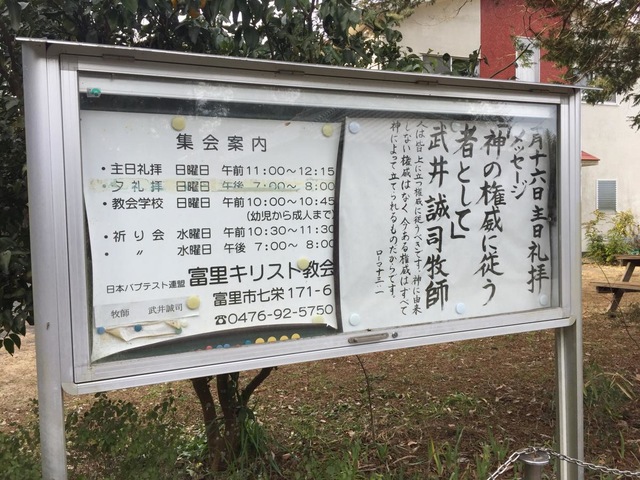 集会案内
・主日礼拝 日曜日 午前11:00〜12:15
・夕礼拝 日曜日 午後 7:00〜 8:00
・教会学校 日曜日 午前10:00〜10:45
(幼児から成人まで)
・祈り会 水曜日 午前10:30〜11:30
・ 〃 水曜日 午後 7:00〜 8:00
日本バプテスト連盟 富里キリスト教会
富里市七栄171-6
☎0476-92-5750
牧師 武井誠司
月十六日主日礼拝
メッセージ
「神の権威に従う
者として」
武井誠司牧師
人は皆上に立つ権威に従うべきです。神に由来
しない権威はなく、今ある権威はすべて
神によって立てられるものだからです。
ローマ十三・一